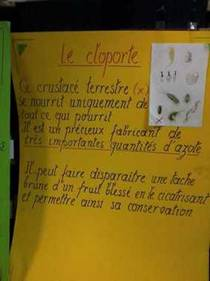 Le cloporte
Ce crustacé terrestre (x)
se nourrit uniquement de
tout ce qui pourrit
Il est un précieux fabricant de
très importantes quantités d'azote
Il peut faire disparaitre une tache
brune d'un fruit blessé en le cicatrisant
et permettre ainsi sa conservation